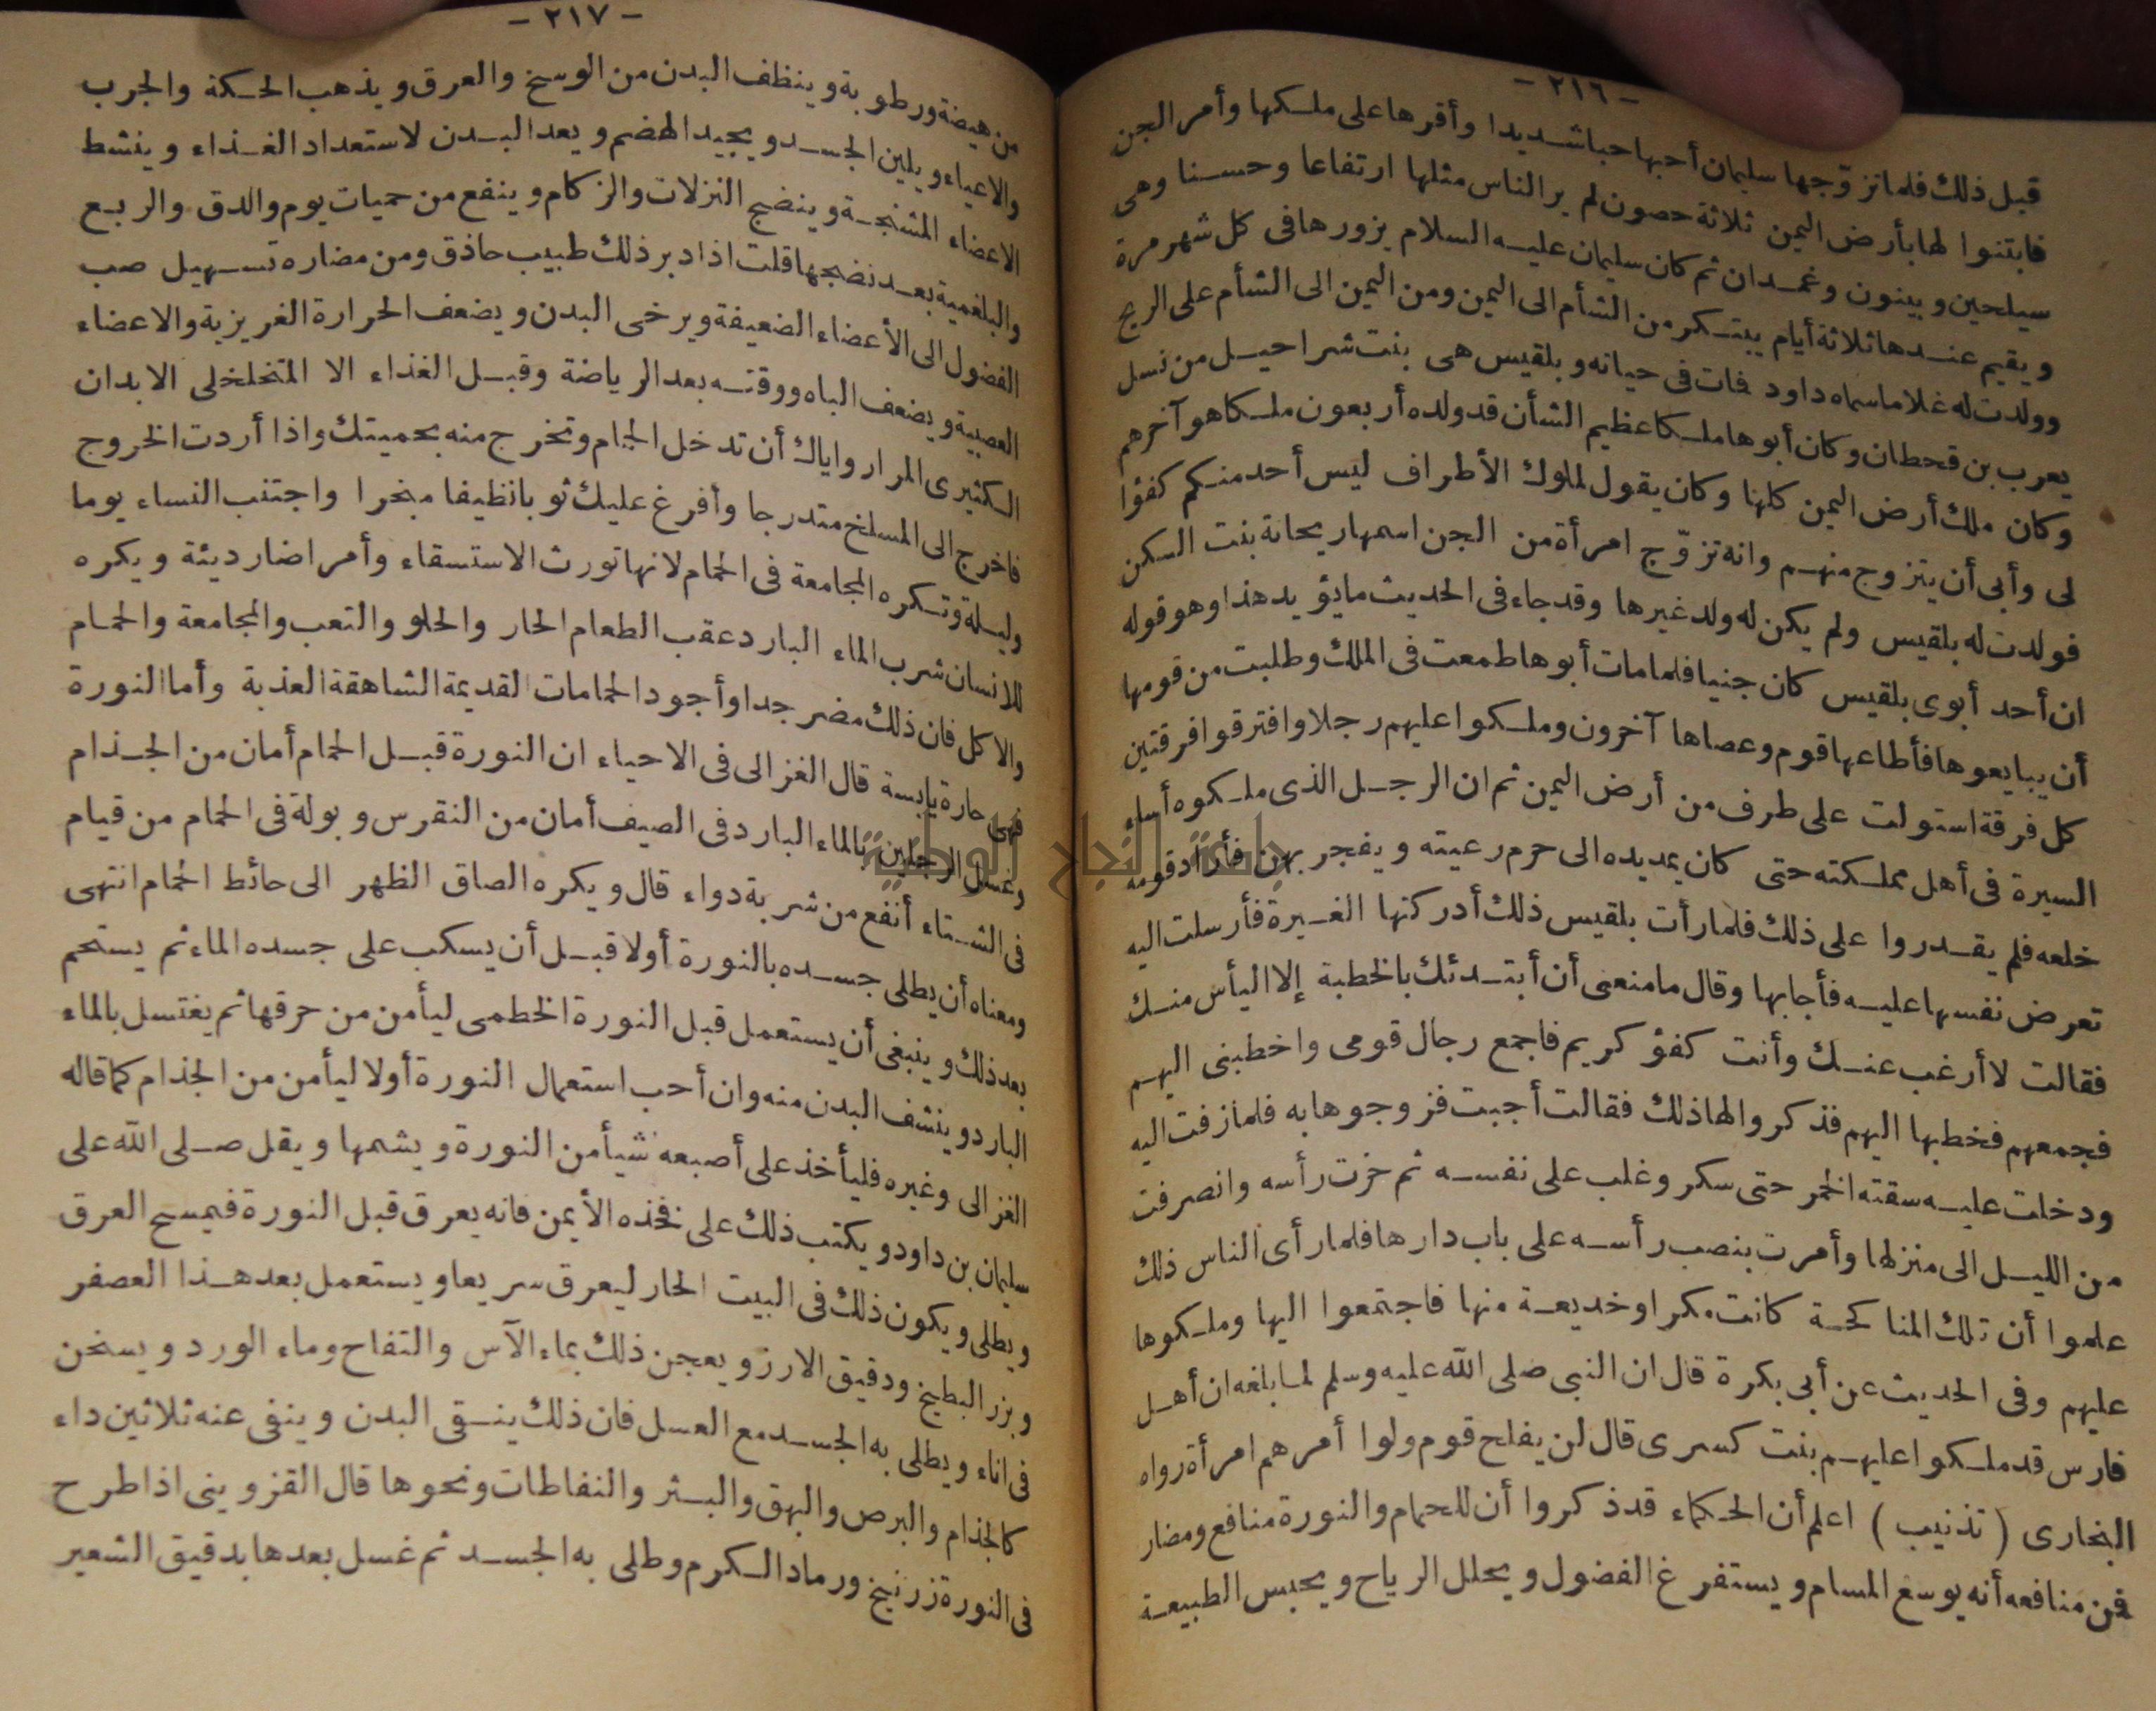 - ٢١٦ -
قبل ذلك فلما تزوّجها سليمان أحبها حبا شديدا وأقرها على ملكها وأمر الجن
فابتنوا لها بأرض اليمن ثلاثة حصون لم ير الناس مثلها ارتفاعا وحسنا وهى
سيلحين وبينون وغمدان ثم كان سليمان عليه السلام يزورها فى كل شهر مرة
ويقيم عندها ثلاثة أيام يبتكر من الشأم الى اليمن ومن اليمن الى الشأم على الريح
وولدت له غلاما سماه داود فمات فى حياته وبلقيس هى بنت شراحيل من نسل
يعرب بن قحطان وكان أبوها ملكا عظيم الشأن قد ولده أربعون ملكا هو آخرهم
وكان ملك أرض اليمن كلها وكان يقول لملوك الأطراف ليس أحد منكم كفؤا
لى وأبى أن يتزوج منهم وانه تزوّج امرأة من الجن اسمها ريحانة بنت السكن
فولدت له بلقيس ولم يكن له ولد غيرها وقد جاء فى الحديث ما يؤيد هذا وهو قوله
ان أحد أبوى بلقيس كان جنيا فلما مات أبوها طمعت فى الملك وطلبت من قومها
أن يبايعوها فأطاعها قوم وعصاها آخرون وملكوا عليهم رجلا وافترقوا فرقتين
كل فرقة استولت على طرف من أرض اليمن ثم ان الرجل الذى ملكوه أساء
السيرة فى أهل مملكته حتى كان يمد يده الى حرم رعيته ويفجر بهن فأراد قومه
خلعه فلم يقدروا على ذلك فلما رأت بلقيس ذلك أدركتها الغيرة فأرسلت اليه
تعرض نفسها عليه فأجابها وقال ما منعنى أن أبتدئك بالخطبة إلا اليأس منك
فقالت لا أرغب عنك وأنت كفؤ كريم فاجمع رجال قومى واخطبنى اليهم
فجمعهم فخطبها اليهم فذكروا لها ذلك فقالت أجبت فزوجوها به فلما زفت اليه
ودخلت عليه سقته الخمر حتى سكر وغلب على نفسه ثم حزت رأسه وانصرفت
من الليل الى منزلها وأمرت بنصب رأسه على باب دارها فلما رأى الناس ذلك
علموا أن تلك المناكحة كانت مكرا وخديعة منها فاجتمعوا اليها وملكوها
عليهم وفى الحديث عن أبى بكرة قال ان النبى صلى الله عليه وسلم لما بلغه ان أهل
فارس قد ملكوا عليهم بنت كسرى قال لن يفلح قوم ولوا أمرهم امرأة رواه
البخارى (تذنيب) اعلم أن الحكماء قد ذكروا أن للحمام والنورة منافع ومضار
فمن منافعه أنه يوسع المسام ويستفرغ الفضول ويحلل الرياح ويحبس الطبيعة
- ٢١٧ -
من هيضة ورطوبة وينظف البدن من الوسخ والعرق ويذهب الحكة والجرب
والاعياء ويلين الجسد ويجيد الهضم ويعد البدن لاستعداد الغذاء وينشط
الاعضاء المشنجة وينضج النزلات والزكام وينفع من حميات يوم والدق والربع
والبلغمية بعد نضجها قلت اذا دبر ذلك طبيب حاذق ومن مضاره تسهيل صب
الفضول الى الأعضاء الضعيفة ويرخى البدن ويضعف الحرارة الغريزية والاعضاء
العصبية ويضعف الباه ووقته بعد الرياضة وقبل الغذاء الا المتخلخلى الابدان
الكثيرى المرار واياك أن تدخل الحمام وتخرج منه بحميتك واذا أردت الخروج
فاخرج الى المسلخ متدرجا وأفرغ عليك ثوبا نظيفا مبخرا واجتنب النساء يوما
وليلة وتكره المجامعة فى الحمام لانها تورث الاستسقاء وأمراضا رديئة ويكره
للانسان شرب الماء البارد عقب الطعام الحار والحلو والتعب والمجامعة والحمام
والاكل فان ذلك مضر جدا وأجود الحمامات القديمة الشاهقة العذبة وأما النورة
فهى حارة يابسة قال الغزالى فى الاحياء ان النورة قبل الحمام أمان من الجذام
وغسل الرجلين بالماء البارد فى الصيف أمان من النقرس وبولة فى الحمام من قيام
فى الشتاء أنفع من شربة دواء قال ويكره الصاق الظهر الى حائط الحمام انتهى
ومعناه أن يطلى جسده بالنورة أولا قبل أن يسكب على جسده الماء ثم يستحم
بعد ذلك وينبغى أن يستعمل قبل النورة الخطمى ليأمن من حرقها ثم يغتسل بالماء
البارد وينشف البدن منه وان أحب استعمال النورة أولا ليأمن من الجذام كما قاله
الغزالى وغيره فليأخذ على أصبعه شيأ من النورة ويشمها ويقل صلى الله على
سليمان بن داود ويكتب ذلك على فخذه الأيمن فانه يعرق قبل النورة فيمسح العرق
ويطلى ويكون ذلك فى البيت الحار ليعرق سريعا ويستعمل بعد هذا العصفر
وبزر البطيخ ودقيق الارز ويعجن ذلك بماء الآس والتفاح وماء الورد ويسخن
فى اناء ويطلى به الجسد مع العسل فان ذلك ينقى البدن وينفى عنه ثلاثين داء
كالجذام والبرص والبهق والبثر والنفاطات ونحوها قال القزوينى اذا طرح
فى النورة زرنيخ ورماد الكرم وطلى به الجسد ثم غسل بعدها بدقيق الشعير
جامعة النجاح الوطنية